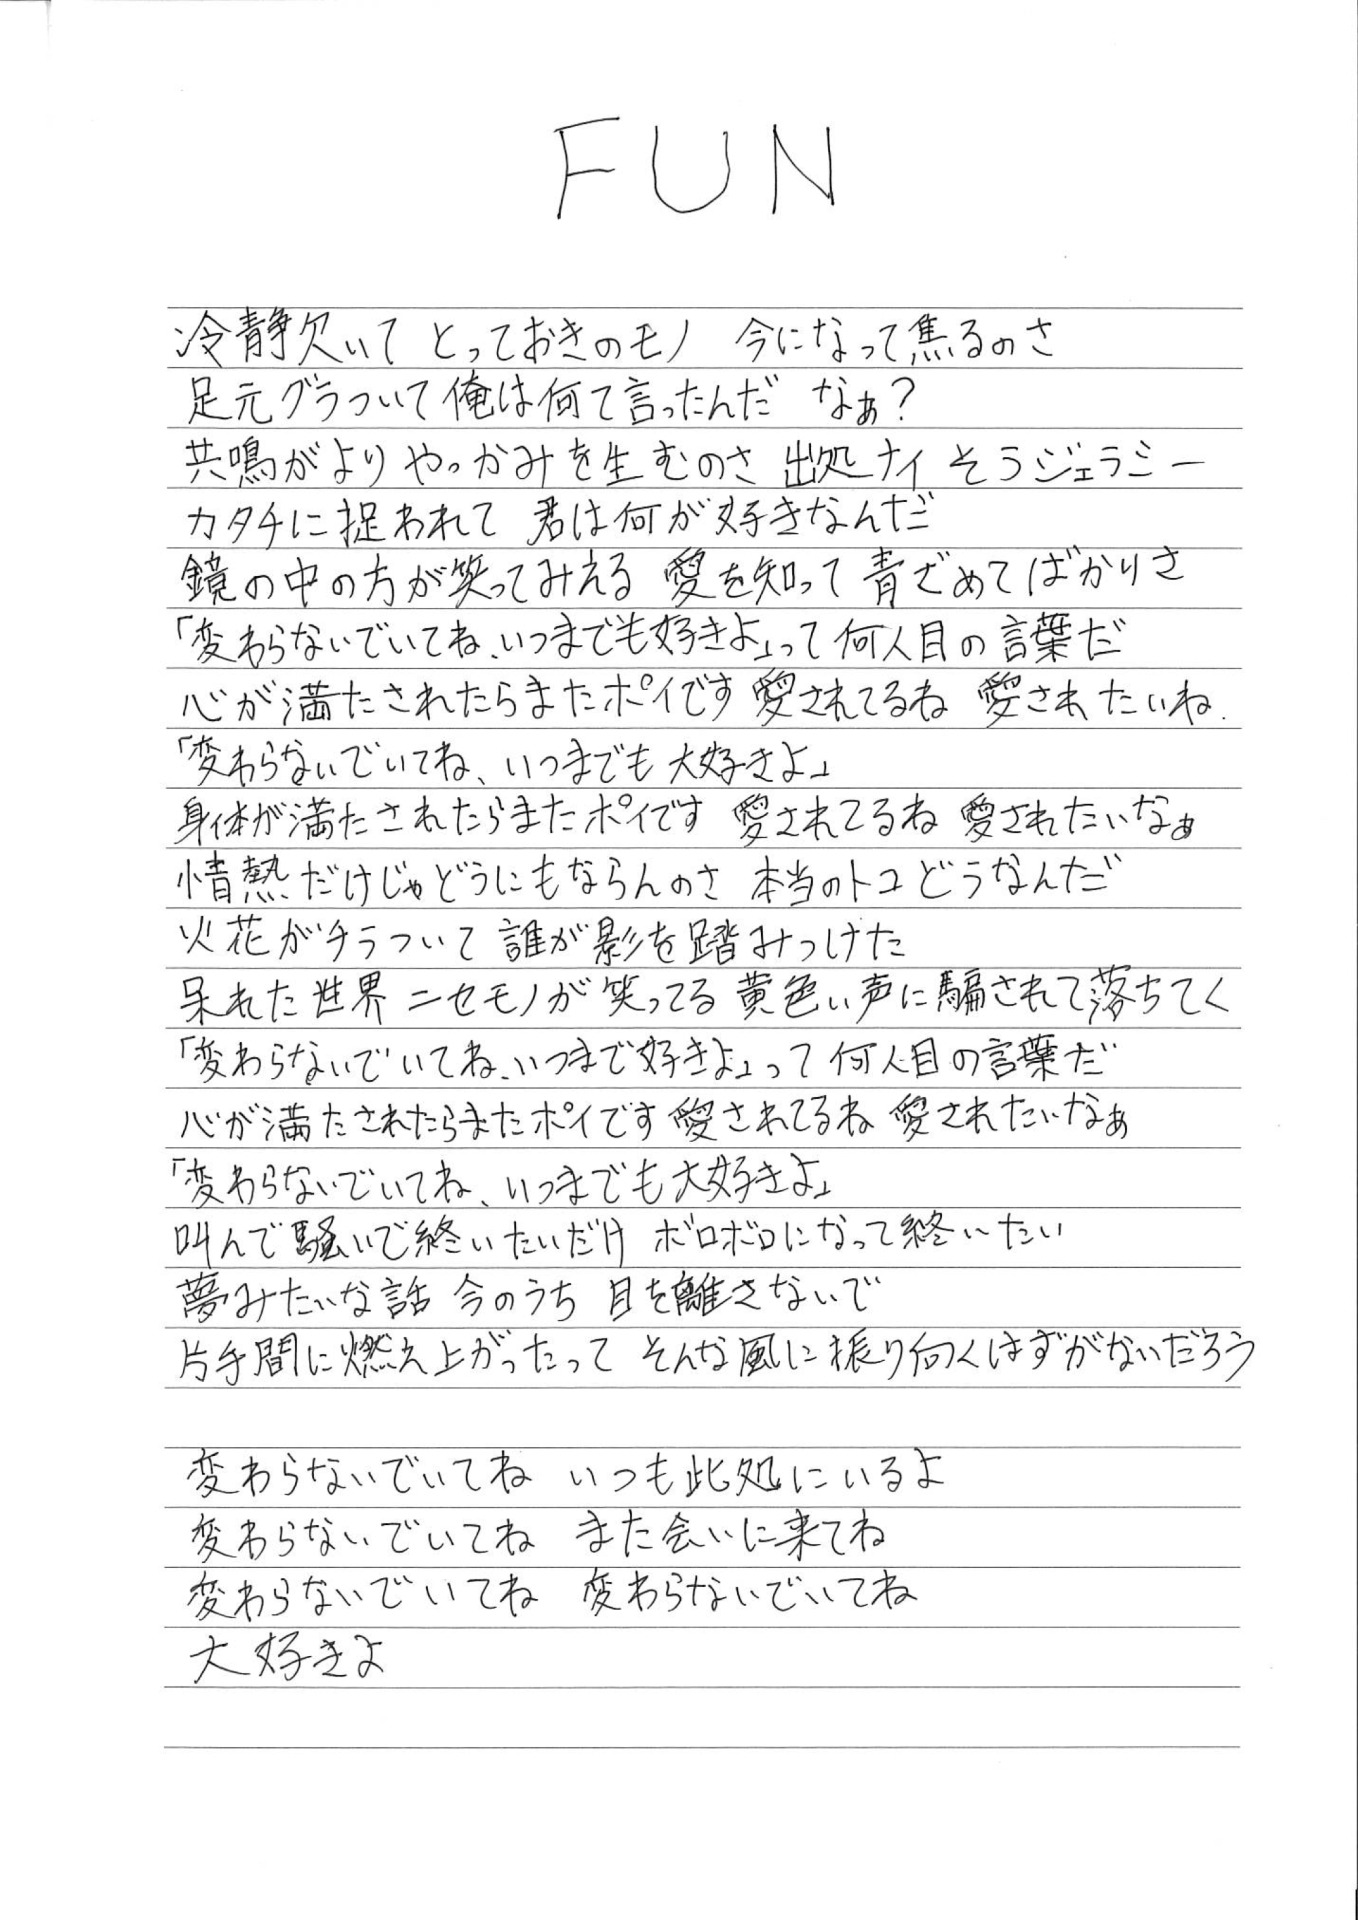 FUN
冷静欠いて とっておきのモノ 今になって焦るのさ
足元グラついて俺は何て言ったんだ なぁ?
共鳴がよりやっかみを生むのさ 出処ナイ そうジェラシー
カタチに捉われて 君は何が好きなんだ
鏡の中の方が笑ってみえる 愛を知って 青ざめてばかりさ
「変わらないでいてね、いつまでも好きよ」って 何人目の言葉だ
心が満たされたらまたポイです 愛されてるね 愛されたいね.
「変わらないでいてね、いつまでも大好きよ」
身体が満たされたらまたポイです 愛されてるね 愛されたいなぁ
情熱だけじゃどうにもならんのさ 本当のトコどうなんだ
火花がチラついて 誰が影を踏みつけた
呆れた世界 ニセモノが笑ってる 黄色い声に騙されて落ちてく
「変わらないでいてね、いつまで好きよ」って 何人目の言葉だ
心が満たされたらまたポイです 愛されてるね 愛されたいなぁ
「変わらないでいてね、いつまでも大好きよ」
叫んで騒いで終いたいだけ ボロボロになって終いたい
夢みたいな話 今のうち 目を離さないで
片手間に燃え上がったって そんな風に振り向くはずがないだろう
変わらないでいてね いつも此処にいるよ
変わらないでいてね また会いに来てね
変わらないでいてね 変わらないでいてね
大好きよ